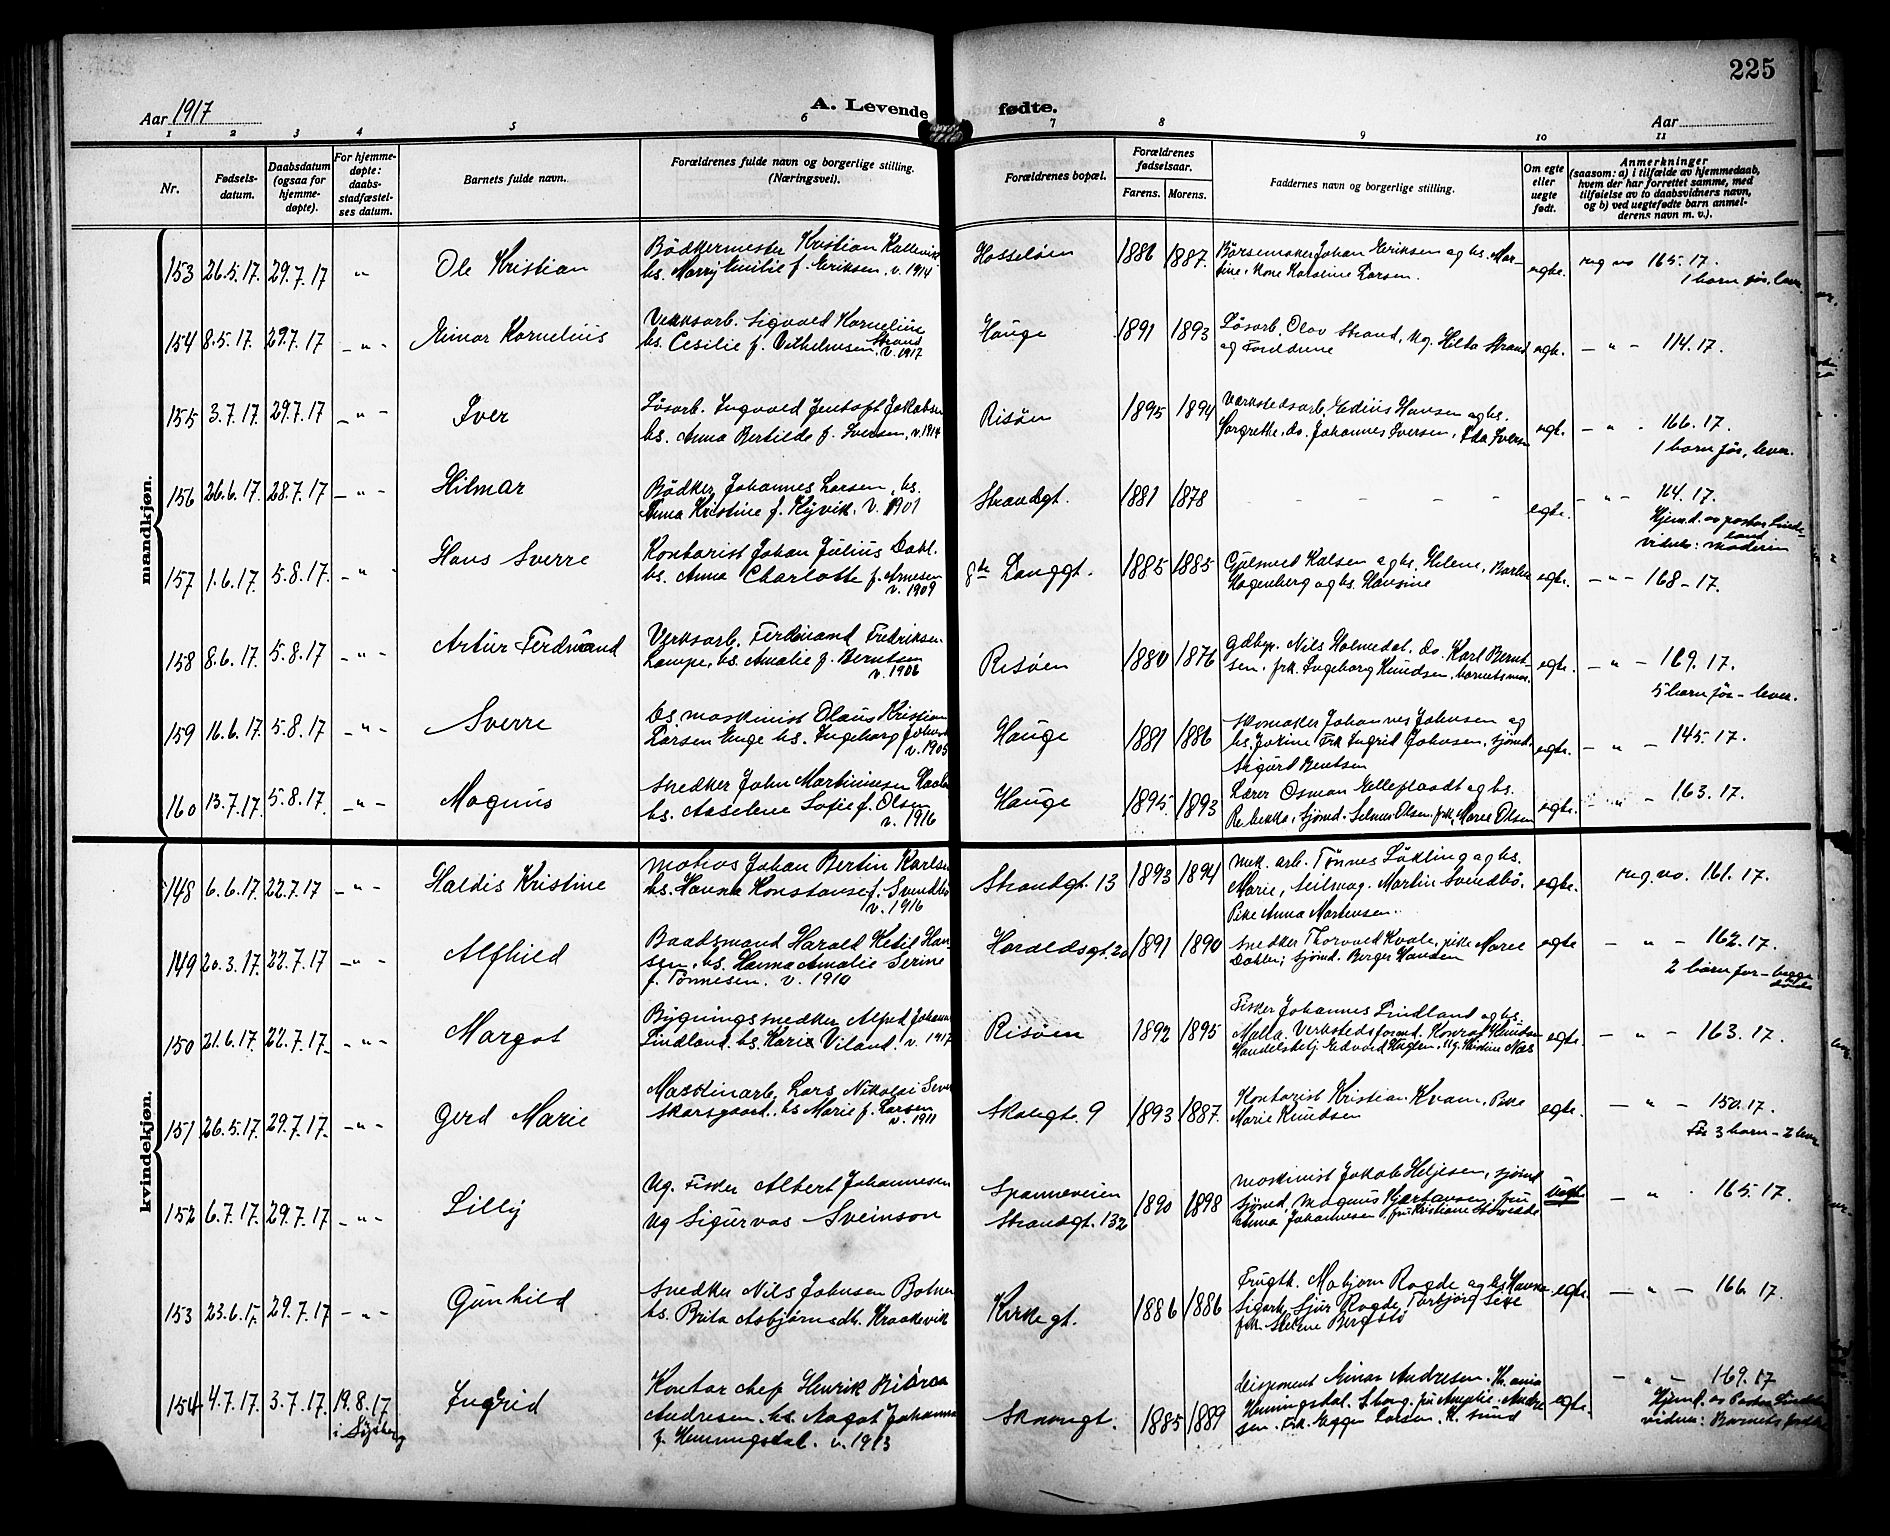 225
Aar 1917
A. Levende fødte.
Aar
1 2 3 4 5 6 7 8 9 10 11
Nr.
Fødsels-
datum.
Daabsdatum
(ogsaa for
hjemme-
døpte).
For hjemme-
døpte:
daabs-
stadfæstel-
ses datum.
Barnets fulde navn.
Forældrenes fulde navn og borgerlige stilling.
(Næringsvei).
Forældrenes bopæl.
Forældrenes
fødselsaar.
Farens. Morens.
Faddernes navn og borgerlige stilling.
Om egte
eller
uegte
født.
Anmerkninger
(saasom: a) i tilfælde av hjemmedaab,
hvem der har forrettet samme, med
tilføielse av to daabsvidners navn,
og b) ved uegtefødte barn anmel-
derens navn m. v.).
mandkjøn.
153 26.5.17. 29.7.17 " Ole Kristian
Bødkermester Kristian
hs. Marry Emilie f. Eriksen, v. 1914
Hasseløen 1886 1887.
Børsemaker Johan Eriksen og hs. Mar-
tine, Kone Karoline Larsen.
egte. reg no 165.17.
1 barn før, lever
154 8.5.17. 29.7.17 - " - Einar Kornelius
Verksarb. Sigvald Kornelius
Strand
hs. Cesilie f. Vilhelmsen v. 1917
Hauge 1891 1893
Løsarb. Olav Strand, Ug. Hilda Strand
og Foreldrene
egte. - " - 114.17.
155 3.7.17. 29.7.17 - " - Iver
Løsarb. Ingvald Jentoft Jakobsen
hs. Anna Bertilde f. Iversen, v. 1914
Risøen 1895 1894
Verkstedsarb. Edius Hansen og hs.
Margrethe, do. Johannes Iversen, Ida Iversen
egt. - " - 166.17.
1 barn før, lever.
156 26.6.17. 28.7.17 - " - Hilmar
Bødker Johannes Larsen, hs.
Anna Kristine f. Kyvik. v. 1901
Strandgt. 1881 1878
egte. - " - 164.17.
Hjemd. av pastor Lind-
land
vidner: moderen
157 1.6.17. 5.8.17. - " - Hans Sverre
Kontorist Johan Julius Dahl.
hs. Anna Charlotte f. Arnesen
v. 1909
Langgt. 1885 1885
Gulsmed Kalsen og hs. Helene, Barber
Hagenberg og hs. Hansine
egte. - " - 168-17.
158 8.6.17. 5.8.17 - " - Artur Ferdinand
Verksarb. Ferdinand Fredriksen
Lampe, hs. Amalie f. Berntsen
v. 1906
Risøen 1880 1876
Nils Holmedal, do. Karl Bernt-
sen, frk. Ingeborg Knudsen, barnets mor.
egte. - " - 169.17.
5 barn før - lever.
159 16.6.17. 5.8.17 - " - Sverre
bs. maskinist Olaus Kristian
Larsen Enge hs. Ingeborg
v. 1905
Hauge 1881 1886
Skomaker Johannes Johnsen og
hs. Jorine Frk Ingrid Johnsen, sjømd.
Sigurd Bentsen
egte. - " - 145.17.
160 13.7.17. 5.8.17. - " - Magnus
Snedker John Martinusen
hs. Aaselene Sofie f. Olsen
v. 1916
Hauge 1895 1893
Lærer Osman og hs.
Rebekka, Sjømd. Selmer Olsen, frk. Marie Olsen
egte. - " - 163.17.
kvindekjøn.
148 6.6.17. 22.7.17 - " - Haldis Kristine
Matros Johan Bertin Karlsen
hs. Hanna Konstanse f. Svendsbø
v. 1916
Strandgt. 13 1893 1894
mek. arb. Tønnes Løkling og hs.
Marie, Seilmag. Martin Svendbø,
Pike Anna Martensen.
egte. reg. no. 161.17.
149 20.3.17. 22.7.17 - " - Alfhild
Baadsmand Harald Ketil Han-
sen, hs. Hanna Amalie Serine
f. Tønnesen. v. 1910
Haraldsgt. 20 1891 1890
Snedker Thorvald Kvale, pike Marie
Dahle; sjømd. Berger Hansen
egte - " - 162.17.
2 barn før - begge
døde
150 21.6.17. 22.7.17. - " - Margot
Bygningssnedker Alfred Johan
Lindland. hs. Karie Viland. v. 1917
Risøen 1892 1895
Fisker Johannes Lindland og hs.
Malla, Verkstedsformd. Konrad Knudsen
Handelsbetj. Edvard Kuglen. Ug. Kristine Næs
egte. - " - 163.17.
151 26.5.17. 29.7.17. - " - Gerd Marie
Maskinarb. Lars Nikolai
Skarsgaard. hs Marie f. Larsen
v. 1911
Skaugt. 9 1893 1887.
Kontorist Kristian Kvam, Pike
Marie Knudsen
egte. - " - 150.17.
Før 3 barn - 2 lever
152 6.7.17. 29.7.17 - " - Lilly
Ug. Fisker Albert Johannesen
Ug Sigurvas Sveinson
Spanneveien
Strandgt. 132
1890 1898
maskinist Jakob Heljesen, sjømd
sjømd. Magnus Kjartansen, fru
Anna Johannesen, fru Kristiane
uegt. - " - 165.17.
153 23.6.17. 29.7.17 - " - Gunhild
Snedker Nils Johnsen Botnen
hs. Brita Asbjørnsdt. Kraakevik
Kirkegt. 1886 1886
Frugth. Mabjørn Rogde og hs Hanna
Sigark. Sjur Rogde, Torbjørg Leke
frk. Helene Bergstø
egte. - " - 166.17.
154 4.7.17. 3.7.17. 19.8.17 Ingrid
i Søsberg
Kontorchef Henrik
Andresen. hs. Aagot Johanna
f. Hemmingsdal. v. 1913
Skaaregt. 1885 1889
Disponent Einar Andresen, Kr.ania
Hemmingsdal. Sborg. fru Amelie Andre
sen, Frk. Larsen, K. sund
egte. - " - 169.17
Hjemd. av Pastor Lindland
vidner: Barnets